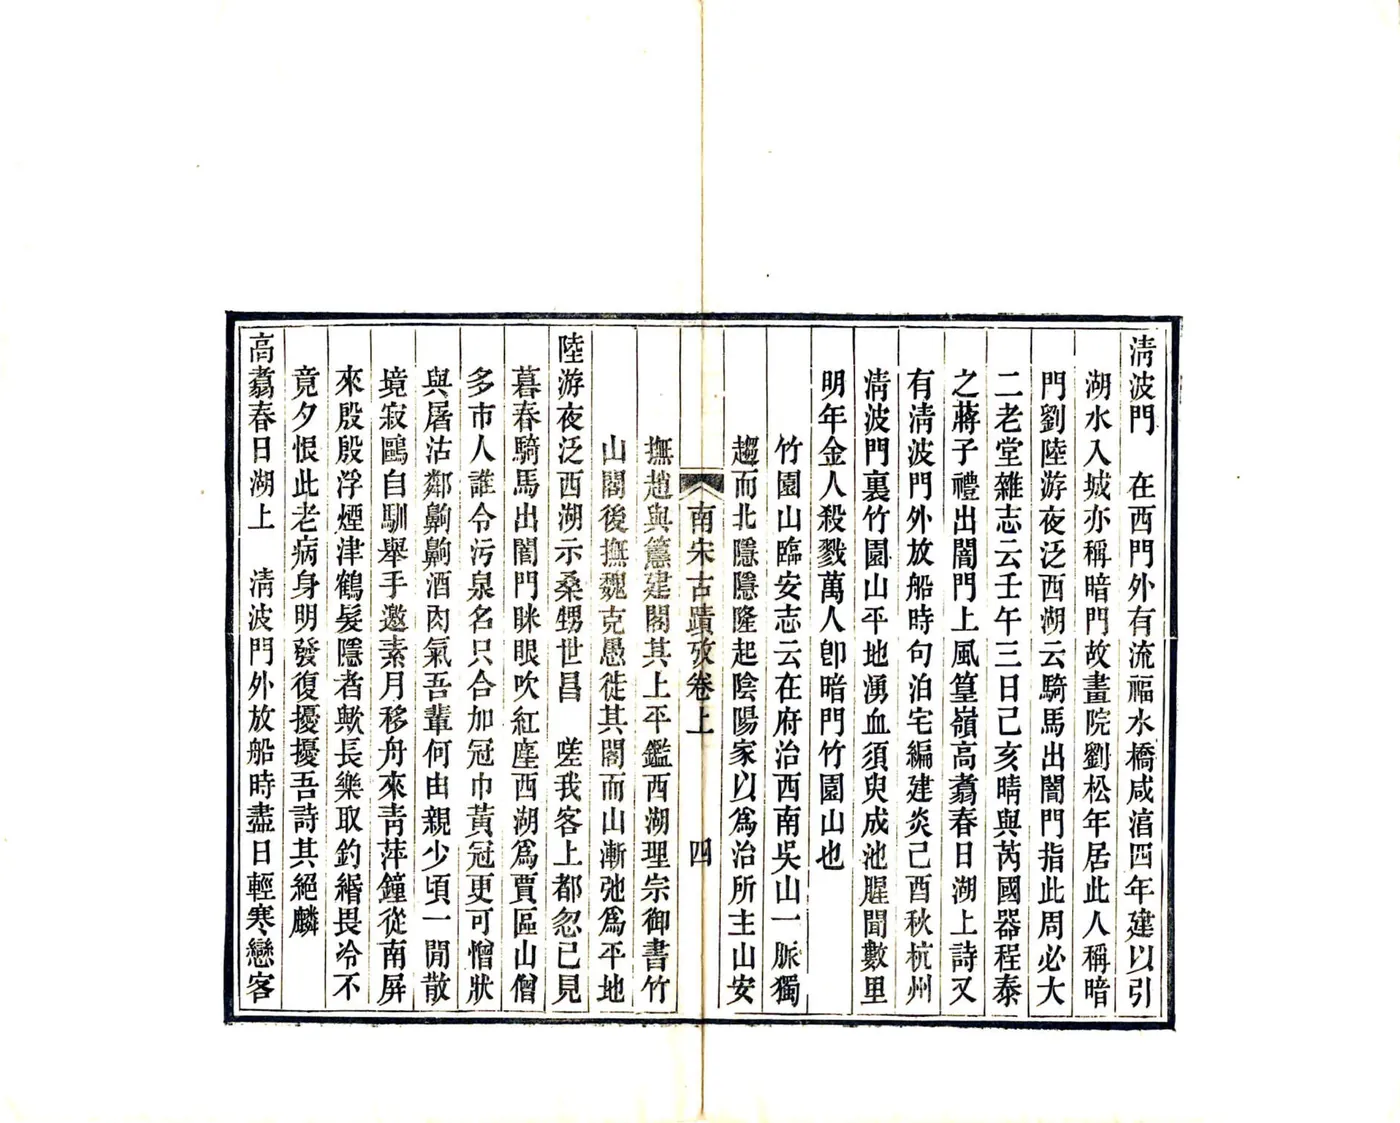 淸波門　在西門外有流福水橋咸淳四年建以引
湖水入城亦稱暗門故畫院劉松年居此人稱暗
門劉陸游夜泛西湖云騎馬出闇門指此周必大
二老堂雜志云壬午三日己亥晴與芮國器程泰
之蔣子禮出闇門上風篁嶺高翥春日湖上詩又
有淸波門外放船時句泊宅編建炎己酉秋杭州
淸波門裏竹園山平地湧血須臾成池腥聞數里
明年金人殺戮萬人卽暗門竹園山也
竹園山臨安志云在府治西南吳山一脈獨
趨而北隱隱隆起陰陽家以爲治所主山安
南宋古蹟攷卷上　四
撫趙與𥲅建閣其上平鑑西湖理宗御書竹
山閣後撫魏克愚徙其閣而山漸弛爲平地
陸游夜泛西湖示桑甥世昌　嗟我客上都忽已見
暮春騎馬出闇門眯眼吹紅塵西湖爲賈區山僧
多市人誰令污泉名只合加冠巾黃冠更可憎狀
與屠沽鄰齁齁酒肉氣吾輩何由親少頃一閒散
境寂鷗自馴舉手邀素月移舟來靑萍鐘從南屏
來殷殷浮煙津鶴髮隱者歟長樂取釣緡畏冷不
竟夕恨此老病身明發復擾擾吾詩其絕麟
高翥春日湖上　淸波門外放船時盡日輕寒戀客